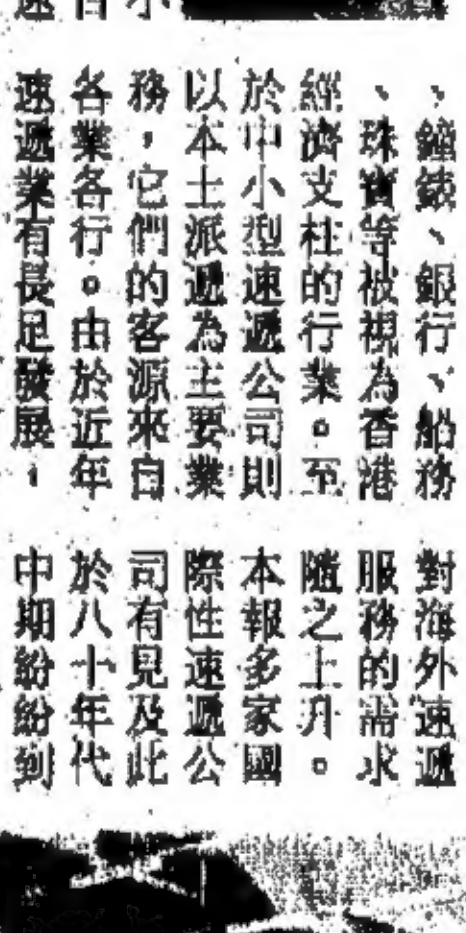 、鐘錶、銀行、船務
、珠寶等被視為香港
經濟支柱的行業。至
於中小型速遞公司則
以本土派遞為主要業
務,它們的客源來自
各業各行。由於近年
速遞業有長足發展,
對海外速遞
服務的需求
隨之上升。
本報多家國
際性速遞公
司有見及此
於八十年代
中期紛紛到